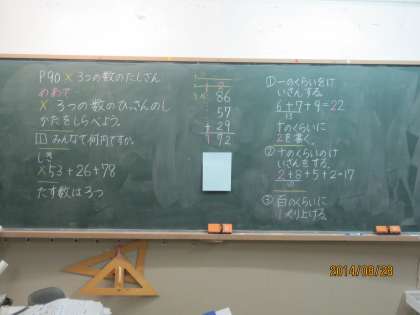 P90 × 3つの数のたしざん
めあて
× 3つの数のひっさんのし
かたをしらべよう。
1 みんなで何円ですか。
しき
×53+26+78
たす数は3つ
86
57
+29
172
① 一のくらいをけ
いさんする。
6+7+9=22
13
十のくらいに
2を書く。
② 十のくらいのけ
いさんをする。
2+8+5+2=17
10
③ 百のくらいに
1くり上げる。
2014/08/28